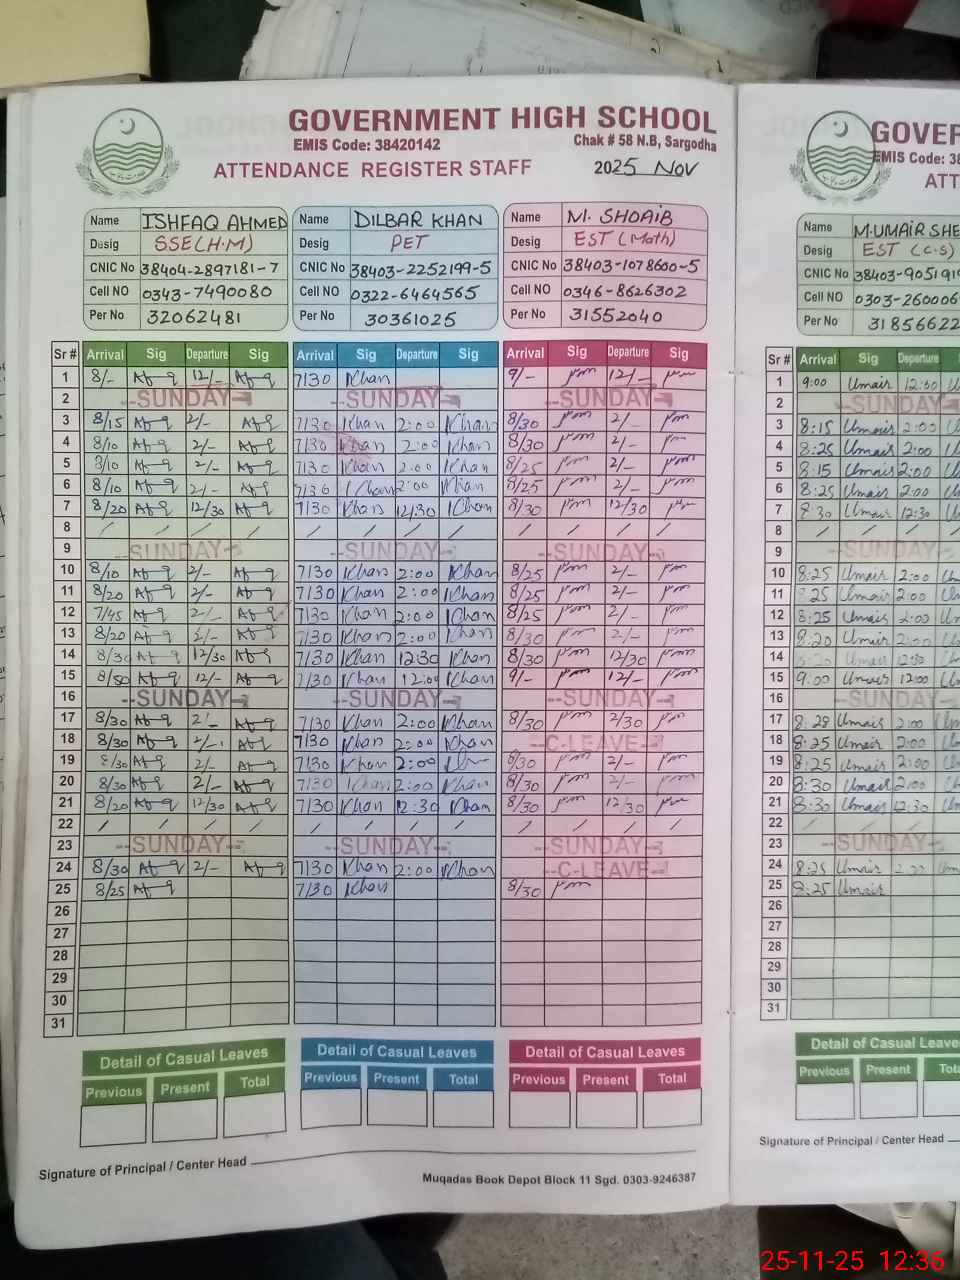 GOVERNMENT HIGH SCHOOL
EMIS Code: 38420142 Chak # 58 N.B, Sargodha
ATTENDANCE REGISTER STAFF 2025 Nov
Name ISHFAQ AHMED Name DILBAR KHAN Name M. SHOAIB
Desig SSE(H.M) Desig PET Desig EST (Math)
CNIC No 38404-2897181-7 CNIC No 38403-2252199-5 CNIC No 38403-1078600-5
Cell NO 0343-7490080 Cell NO 0322-6464565 Cell NO 0346-8626302
Per No 32062481 Per No 30361025 Per No 31552040
Sr # Arrival Sig Departure Sig Arrival Sig Departure Sig Arrival Sig Departure Sig
1 8/- 12/- 7130 Khan 9/- 12/-
2 --SUNDAY-- --SUNDAY-- --SUNDAY--
3 8/15 2/- 7130 Khan 2:00 Khan 8/30 2/-
4 8/10 2/- 7130 Khan 2:00 Khan 8/30 2/-
5 8/10 2/- 7130 Khan 2:00 Khan 8/25 2/-
6 8/10 2/- 7130 Khan 2:00 Khan 8/25 2/-
7 8/20 12/30 7130 Khan 12/30 Khan 8/30 12/30
8 / / / / / / / / / / / /
9 --SUNDAY-- --SUNDAY-- --SUNDAY--
10 8/10 2/- 7130 Khan 2:00 Khan 8/25 2/-
11 8/20 2/- 7130 Khan 2:00 Khan 8/25 2/-
12 7/45 2/- 7130 Khan 2:00 Khan 8/25 2/-
13 8/20 2/- 7130 Khan 2:00 Khan 8/30 2/-
14 8/30 12/30 7130 Khan 12:30 Khan 8/30 12/30
15 8/50 12/- 7/30 Khan 12:00 Khan 9/- 12/-
16 --SUNDAY-- --SUNDAY-- --SUNDAY--
17 8/30 2/- 7130 Khan 2:00 Khan 8/30 2/30
18 8/30 2/- 7130 Khan 2:00 Khan --C-LEAVE--
19 8/30 2/- 7130 Khan 2:00 8/30 2/-
20 8/30 2/- 7130 Khan 2:00 Khan 8/30 2/-
21 8/20 12/30 7130 Khan 12:30 Khan 8/30 12/30
22 / / / / / / / /
23 --SUNDAY-- --SUNDAY-- --SUNDAY--
24 8/30 2/- 7130 Khan 2:00 Khan --C-LEAVE--
25 8/25 7/30 Khan 8/30
26
27
28
29
30
31
Detail of Casual Leaves Detail of Casual Leaves Detail of Casual Leaves
Previous Present Total Previous Present Total Previous Present Total
Signature of Principal / Center Head
Muqadas Book Depot Block 11 Sgd. 0303-9246387
GOVER
EMIS Code: 38
ATT
Name M.UMAIR SHE
Desig EST (C.S)
CNIC No 38403-905191
Cell NO 0303-260006
Per No 3185662
Sr # Arrival Sig Departure
1 9:00 Umair 12:00
2 --SUNDAY
3 8:15 Umair 2:00
4 8:25 Umair 2:00
5 8:15 Umair 2:00
6 8:25 Umair 2:00
7 8:30 Umair 12:30
8 / / /
9 --SUNDAY
10 8:25 Umair 2:00
11 8:25 Umair 2:00
12 8:25 Umair 2:00
13 8:20 Umair 2:00
14 8:20 Umair 12:30
15 9:00 Umair 12:00
16 --SUNDAY
17 8:28 Umair 2:00
18 8:25 Umair 2:00
19 8:25 Umair 2:00
20 8:30 Umair 2:00
21 8:30 Umair 12:30
22 / / /
23 --SUNDAY
24 8:25 Umair
25 8:25 Umair
26
27
28
29
30
31
Detail of Casual Leave
Previous Present Tota
Signature of Principal / Center Head
25-11-25 12:36